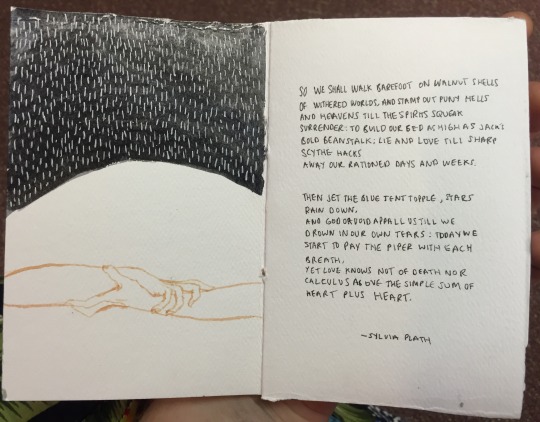 SO WE SHALL WALK BAREFOOT ON WALNUT SHELLS
OF WITHERED WORLDS, AND STAMP OUT PUNY HELLS
AND HEAVENS TILL THE SPIRITS SQUEAK
SURRENDER: TO BUILD OUR BED AS HIGH AS JACK'S
BOLD BEANSTALK; LIE AND LOVE TILL SHARP
SCYTHE HACKS
AWAY OUR RATIONED DAYS AND WEEKS.
THEN JET THE BLUE TENT TOPPLE, STARS
RAIN DOWN,
AND GOD OR VOID APPALL US TILL WE
DROWN IN OUR OWN TEARS: TODAY WE
START TO PAY THE PIPER WITH EACH
BREATH,
YET LOVE KNOWS NOT OF DEATH NOR
CALCULUS ABOVE THE SIMPLE SUM OF
HEART PLUS HEART.
—SYLVIA PLATH